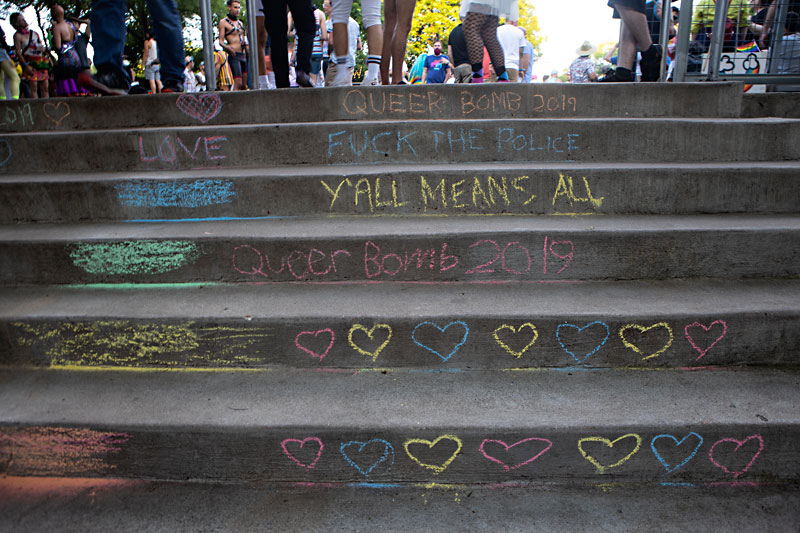 QUEER BOMB 2019
LOVE
FUCK THE POLICE
Y'ALL MEANS ALL
Queer Bomb 2019